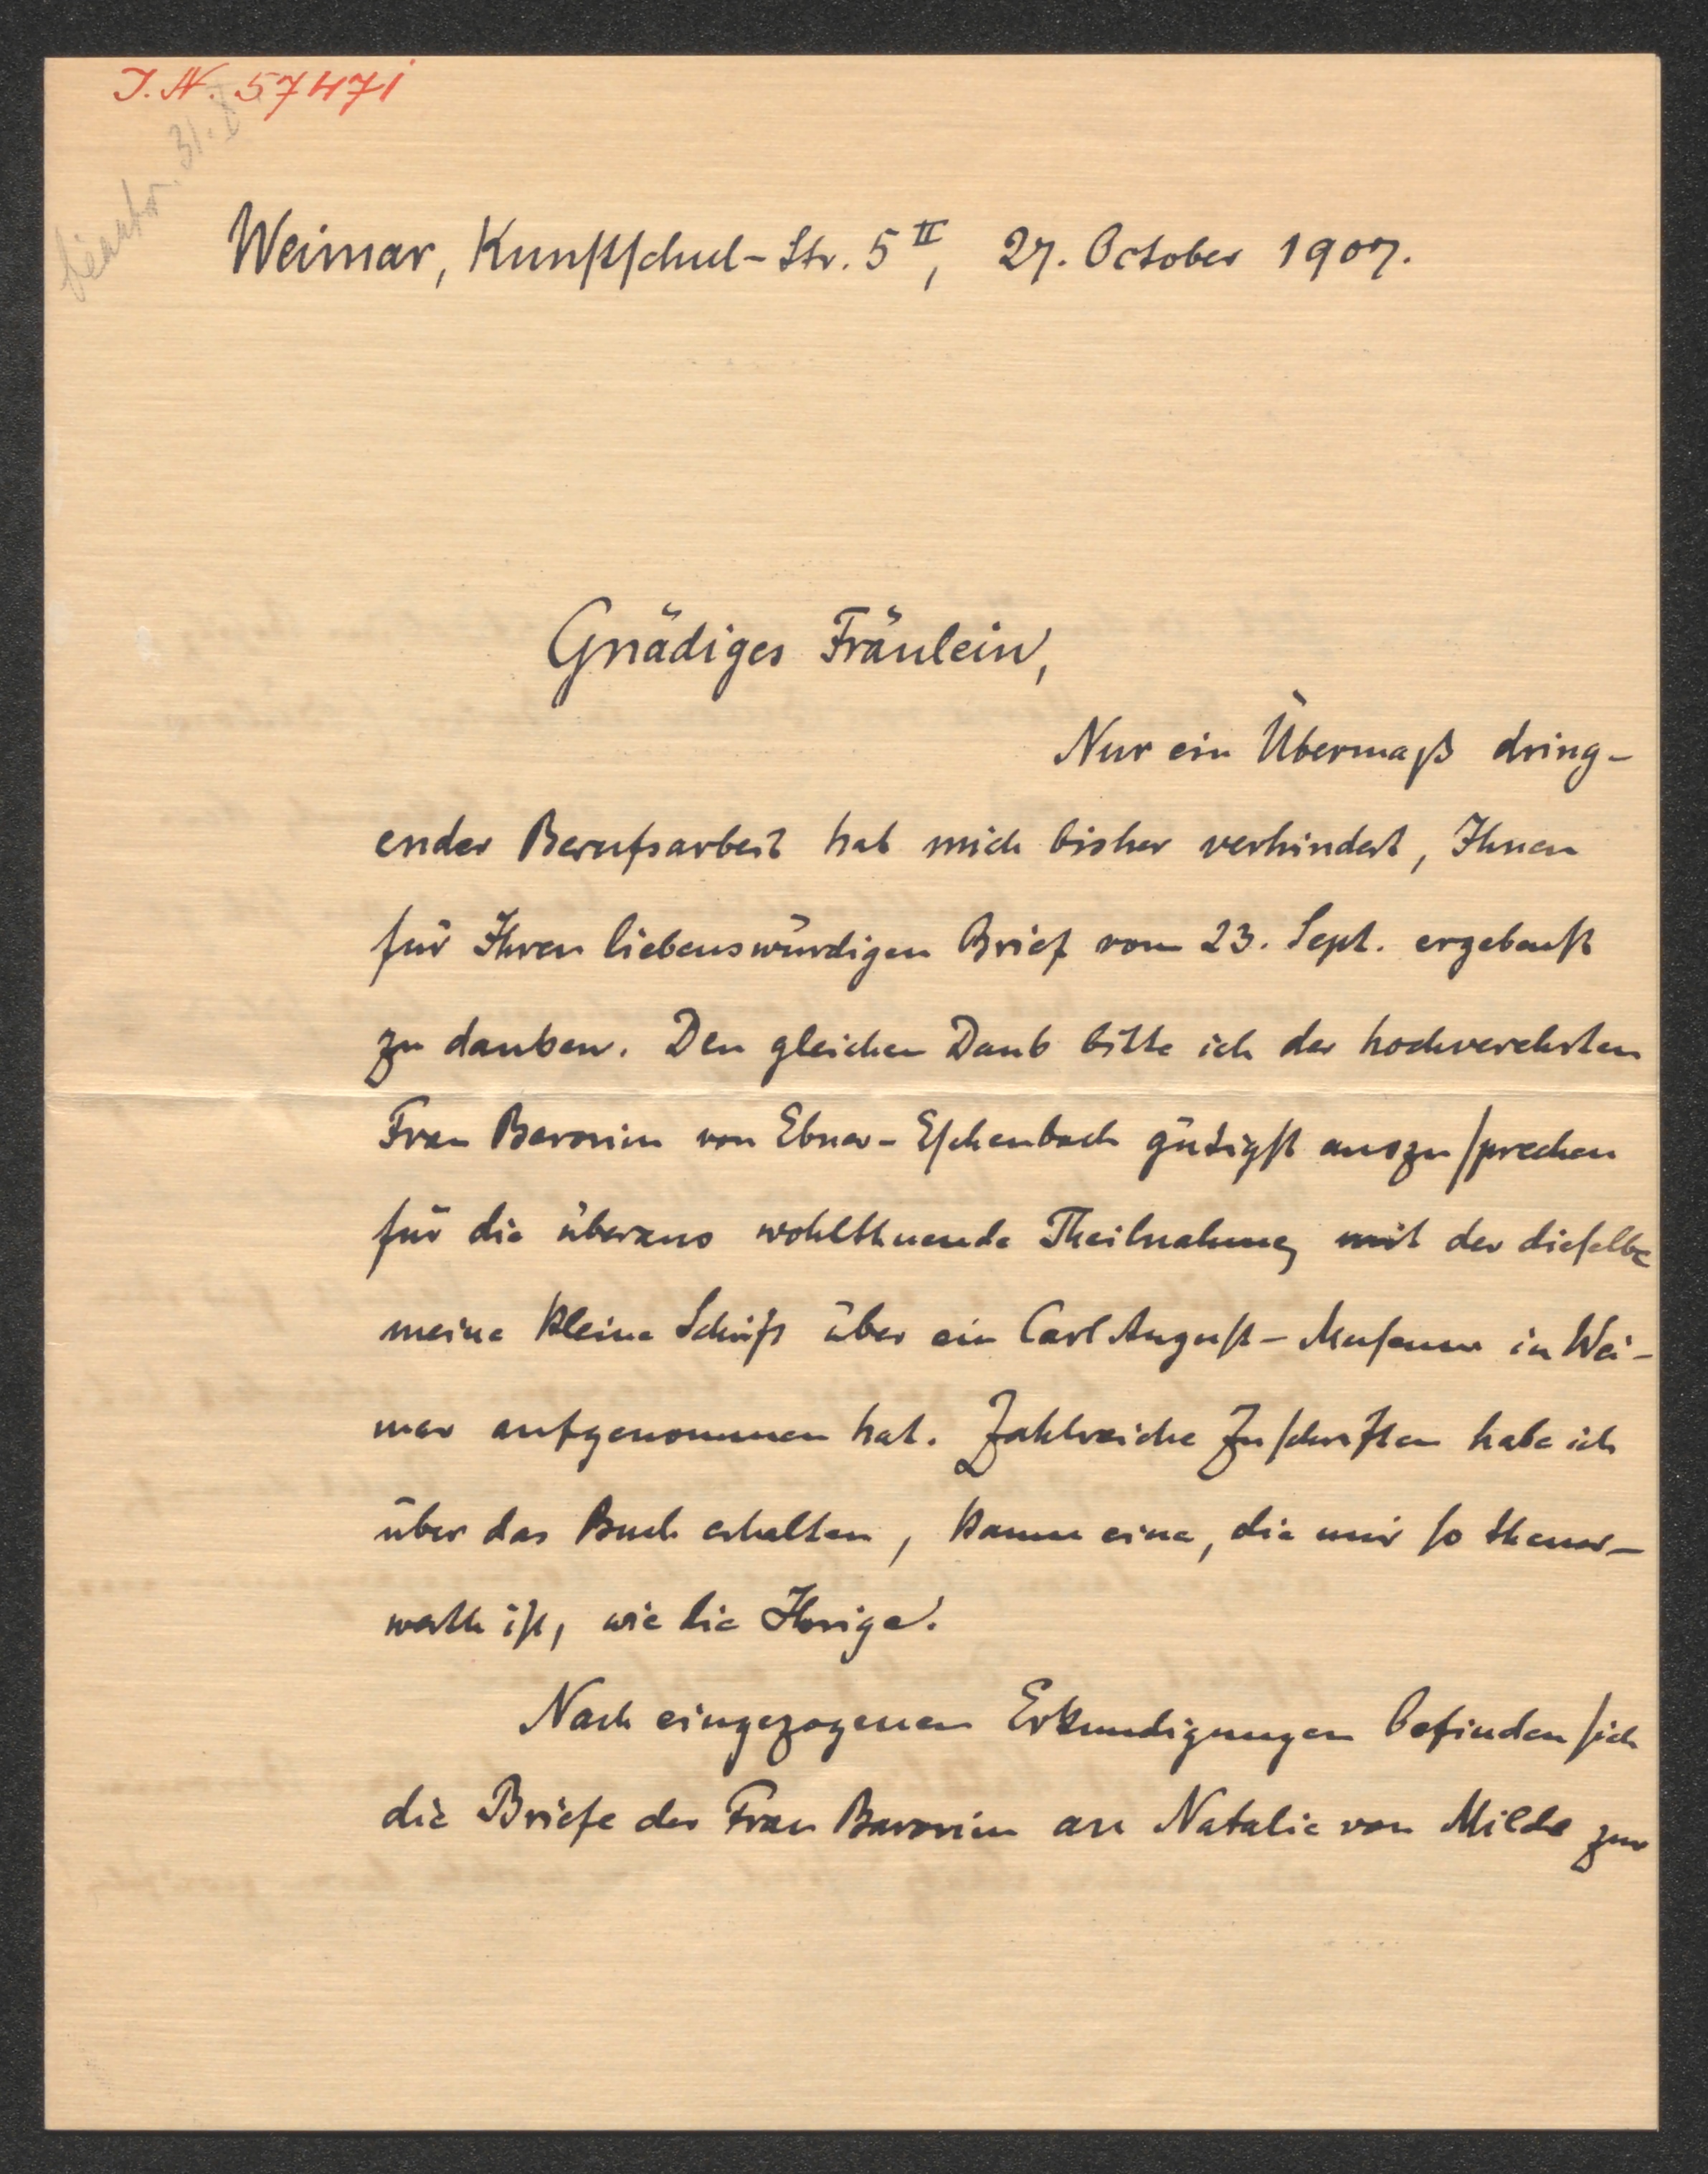 J. N. 57471
beantw. 31. X
Weimar, Kunstschul-Str. 5 II, 27. October 1907.
Gnädiges Fräulein,
Nur ein Übermaß dring-
ender Berufsarbeit hat mich bisher verhindert, Ihnen
für Ihren liebenswürdigen Brief vom 23. Sept. ergebenst
zu danken. Den gleichen Dank bitte ich der hochverehrten
Frau Baronin von Ebner-Eschenbach gütigst auszusprechen
für die überaus wohlthuende Theilnahme, mit der dieselbe
meine kleine Schrift über ein Carl August-Museum in Wei-
mar aufgenommen hat. Zahlreiche Zuschriften habe ich
über das Buch erhalten, kaum eine, die mir so theuer-
werth ist, wie die Ihrige.
Nach eingezogenen Erkundigungen befinden sich
die Briefe der Frau Baronin an Natalie von Milde zur